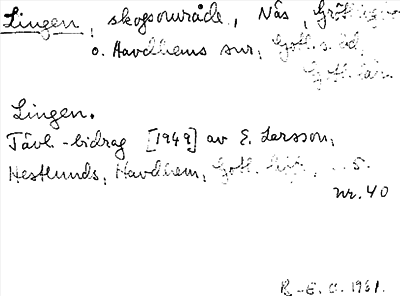 Lingen, skogsområde, Näs, Grötlingbo
o. Havdhems snr, Gotl. s. hd,
Gotl. län.
Lingen.
Tävl.-bidrag [1949] av E. Larsson,
Hestlunds, Havdhem, Gotl.
nr. 40
R-E. O. 1961.